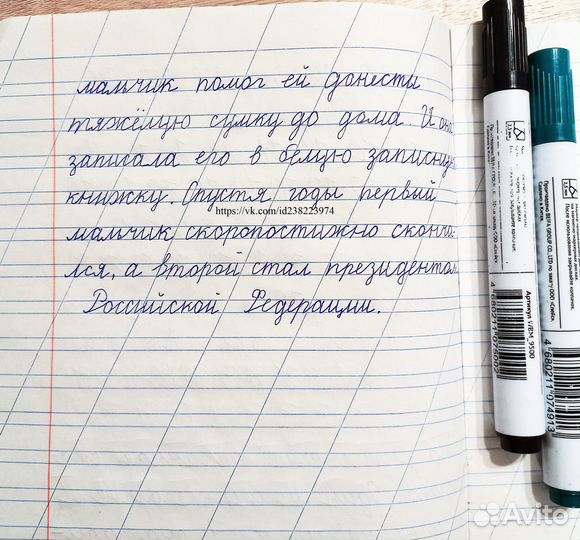 мальчик помог ей донести
тяжёлую сумку до дома. И она
записала его в белую записную
книжку. Спустя годы первый
https://vk.com/id238223974
мальчик скоропостижно сконча-
лся, а второй стал президентом
Российской Федерации.
Артикул VBM_9500
4 680211 075002
4 680211 074913
Avito